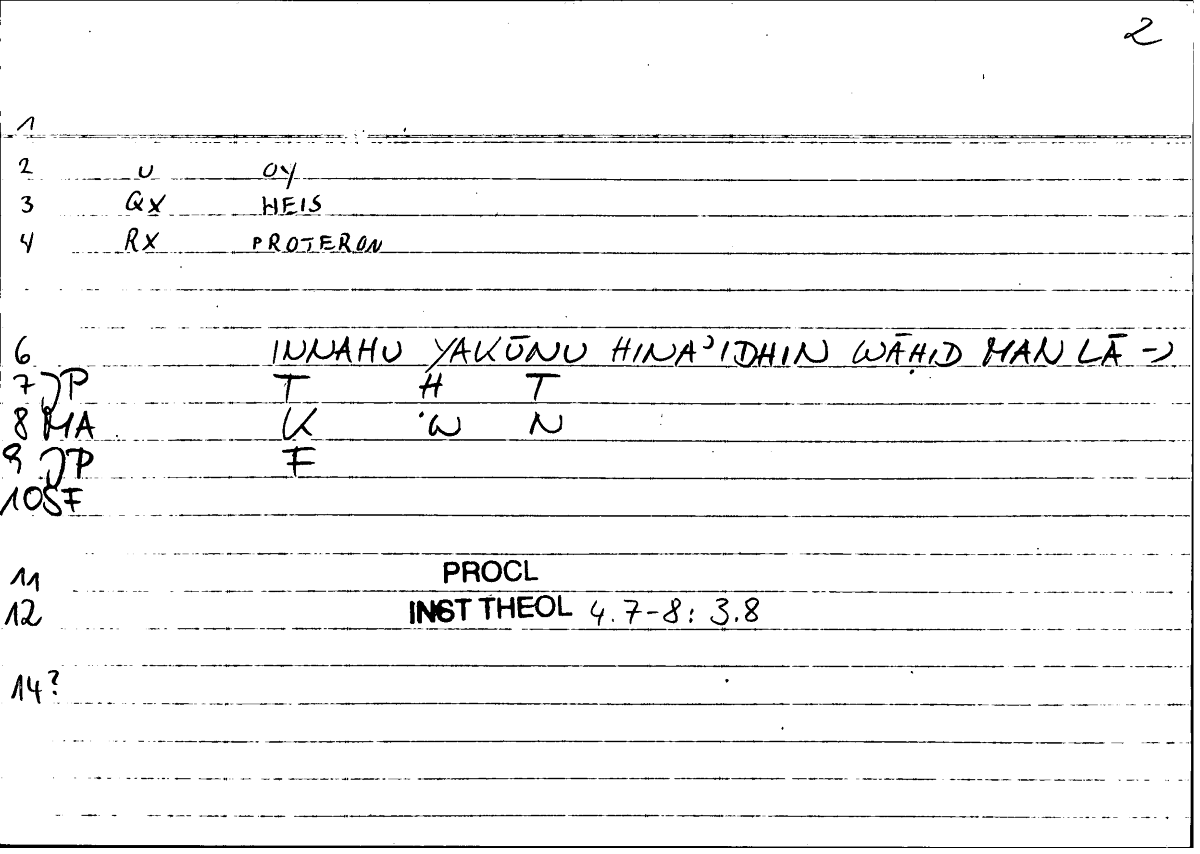 2
1
2 U OY
3 QX HEIS
4 RX PROTERON
6 INNAHU YAKŪNU HINAʾIDHIN WĀḤID MAN LĀ →
7 JP T H T
8 MA K W N
9 JP F
10 SF
11 PROCL
12 INST THEOL 4.7-8: 3.8
14?